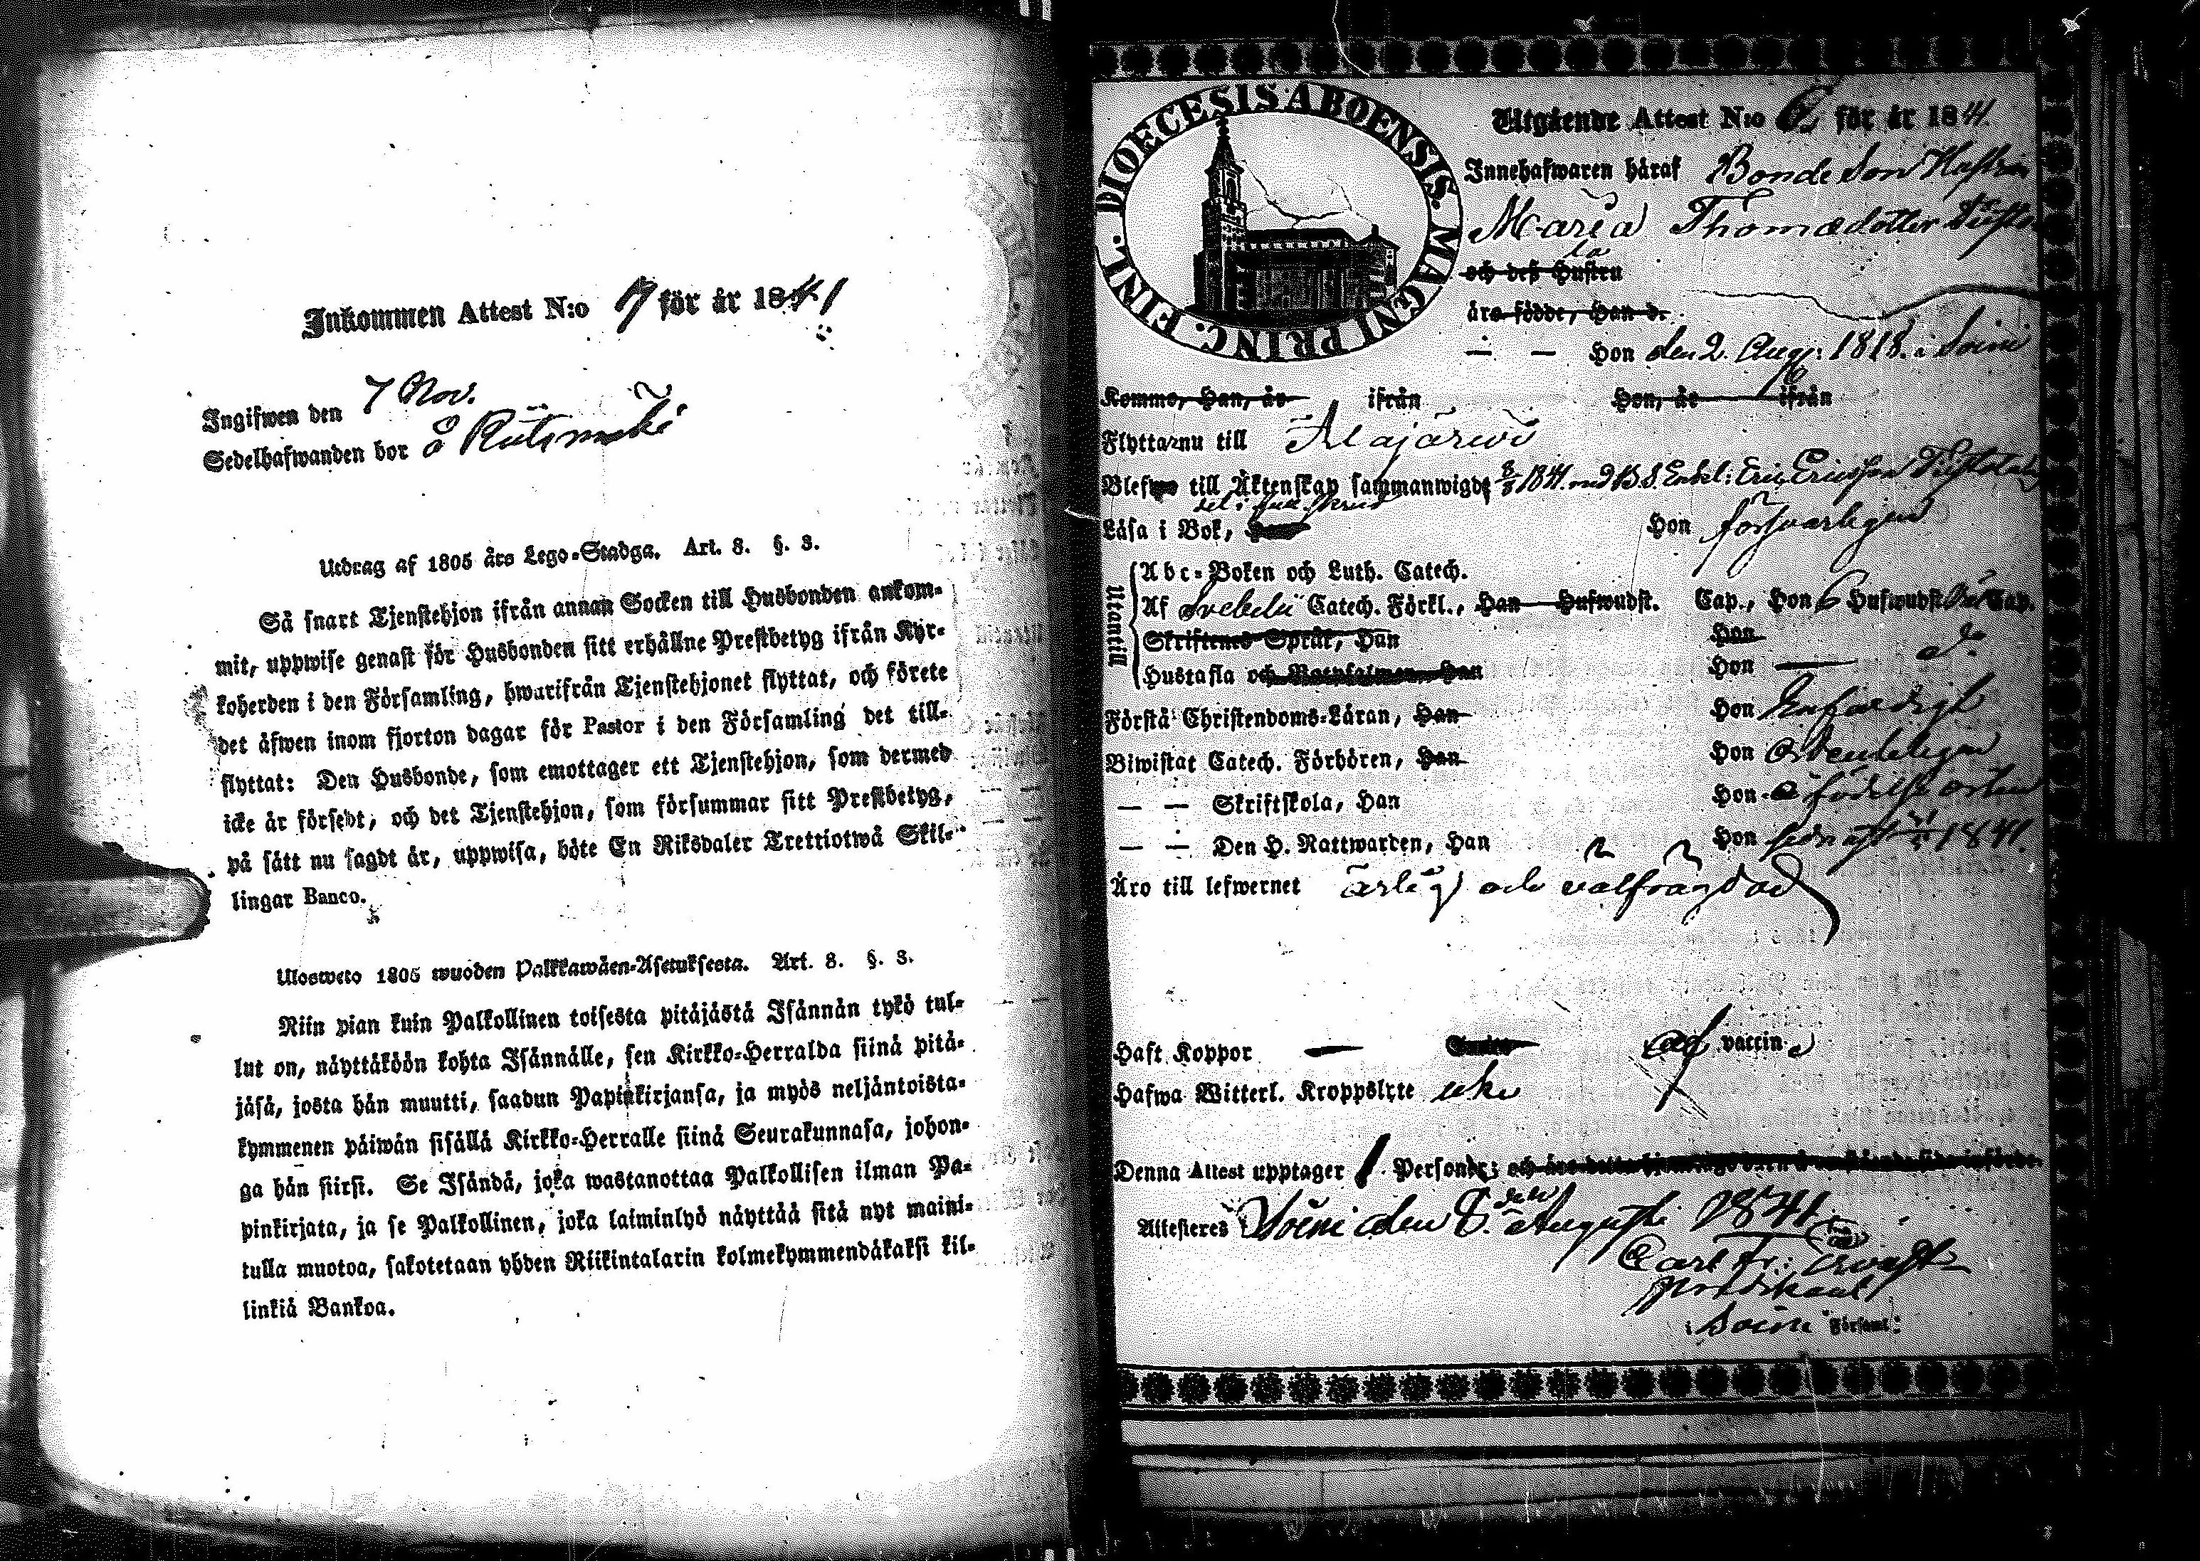 Inkommen Attest N:o 17 för år 1841
Ingifwen den 7 Nov.
Sedelhafwanden bor å
Utdrag af 1805 års Lego-Stadga. Art. 8. §. 3.
Så snart Tjenstehjon ifrån annan Socken till Husbonden ankom-
mit, uppwise genast för Husbonden sitt erhållne Prestbetyg ifrån Kyr-
koherden i den Församling, hwarifrån Tjenstehjonet flyttat, och förete
det äfwen inom fjorton dagar för Pastor i den Församling det till-
flyttat: Den Husbonde, som emottager ett Tjenstehjon, som dermed
icke är försedt, och det Tjenstehjon, som försummar sitt Prestbetyg,
på sätt nu sagdt är, uppwisa, böte En Riksdaler Trettiotwå Skil-
lingar Banco.
Ulosweto 1805 wuoden Palkkawäen-Asetuksesta. Art. 8. §. 3.
Niin pian kuin Palkollinen toisesta pitäjästä Isännän tykö tul-
lut on, näyttäköön kohta Isännälle, sen Kirkko-Herralda siinä pitä-
jäsä, josta hän muutti, saadun Papinkirjansa, ja myös neljäntoista-
kymmenen päiwän sisällä Kirkko-Herralle siinä Seurakunnasa, johon-
ga hän siirsi. Se Isändä, joka wastanottaa Palkollisen ilman Pa-
pinkirjata, ja se Palkollinen, joka laiminlyö näyttää sitä nyt maini-
tulla muotoa, sakotetaan yhden Riikintalarin kolmekymmendäkaksi kil-
linkiä Bankoa.
DIOECESIS ABOENSIS. MAGNI PRINC. FINL.
Utgående Attest N:o 6 för år 1841.
Innehafwaren häraf Bonde Son Hustrun
Maria Thomædotter
och deß Hustru
äro födde, Han d.
— — Hon den 2. Aug: 1818. i Soini
Kommo, Han, år ifrån Hon, år ifrån
Flyttar nu till Alajärwi
Blefwo till Äktenskap sammanwigde 1841. med B.S. Enkl: Eric Ericsson
Läsa i Bok, Han Hon försvarligen
Utantill
Abc-Boken och Luth. Catech.
Af Svebelii Catech. Förkl., Han Hufwudst. Cap., Hon 6 Hufwudst. Cap.
Skriftenes Språk, Han Hon
Hustafla och Botpsalmen, Han Hon — d:o
Förstå Christendoms-Läran, Han Hon Enfaldigt
Biwistat Catech. Förhören, Han Hon ordenteligen
— — Skriftskola, Han Hon i födelse orten
— — Den H. Nattwarden, Han Hon 1841.
Äro till lefwernet ärlig och välfrägdad
Haft Koppor — af vaccin
Hafwa Witterl. Kroppslyte icke
Denna Attest upptager 1 Personer;
Attesteres Soini den 8. Augusti 1841.
Carl Fr:
Predikant
i Soini Församl: